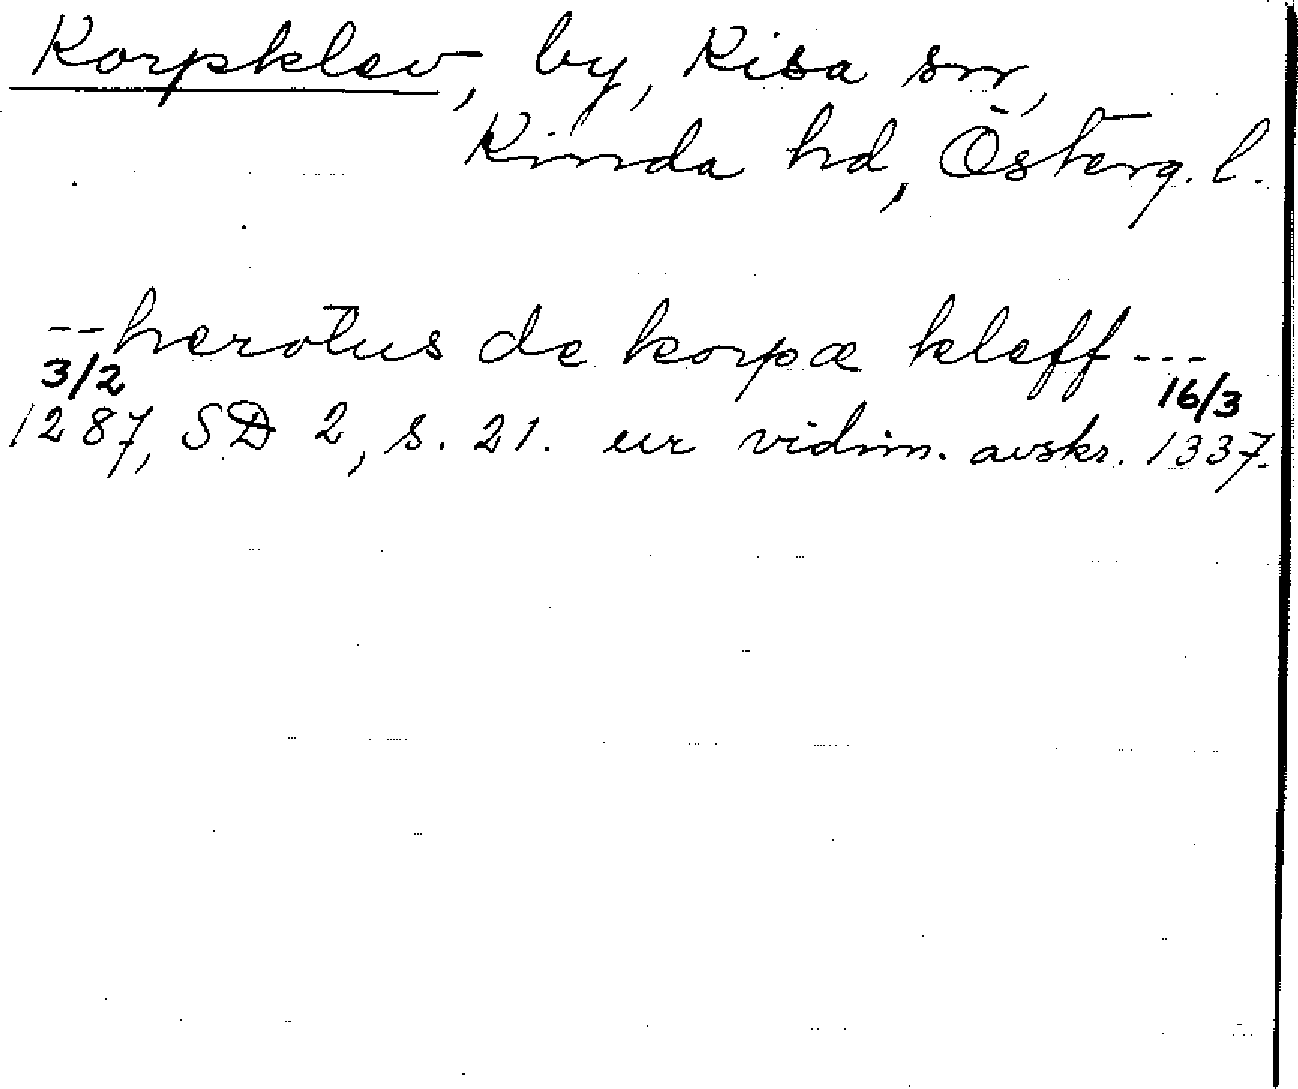 Korpklev, by, Kisa sn,
Kinda hd, Österg. l.
--herotus de korpæ kleff---
3/2 16/3
1287, SD 2, s. 21. ur vidim. avskr. 1337.